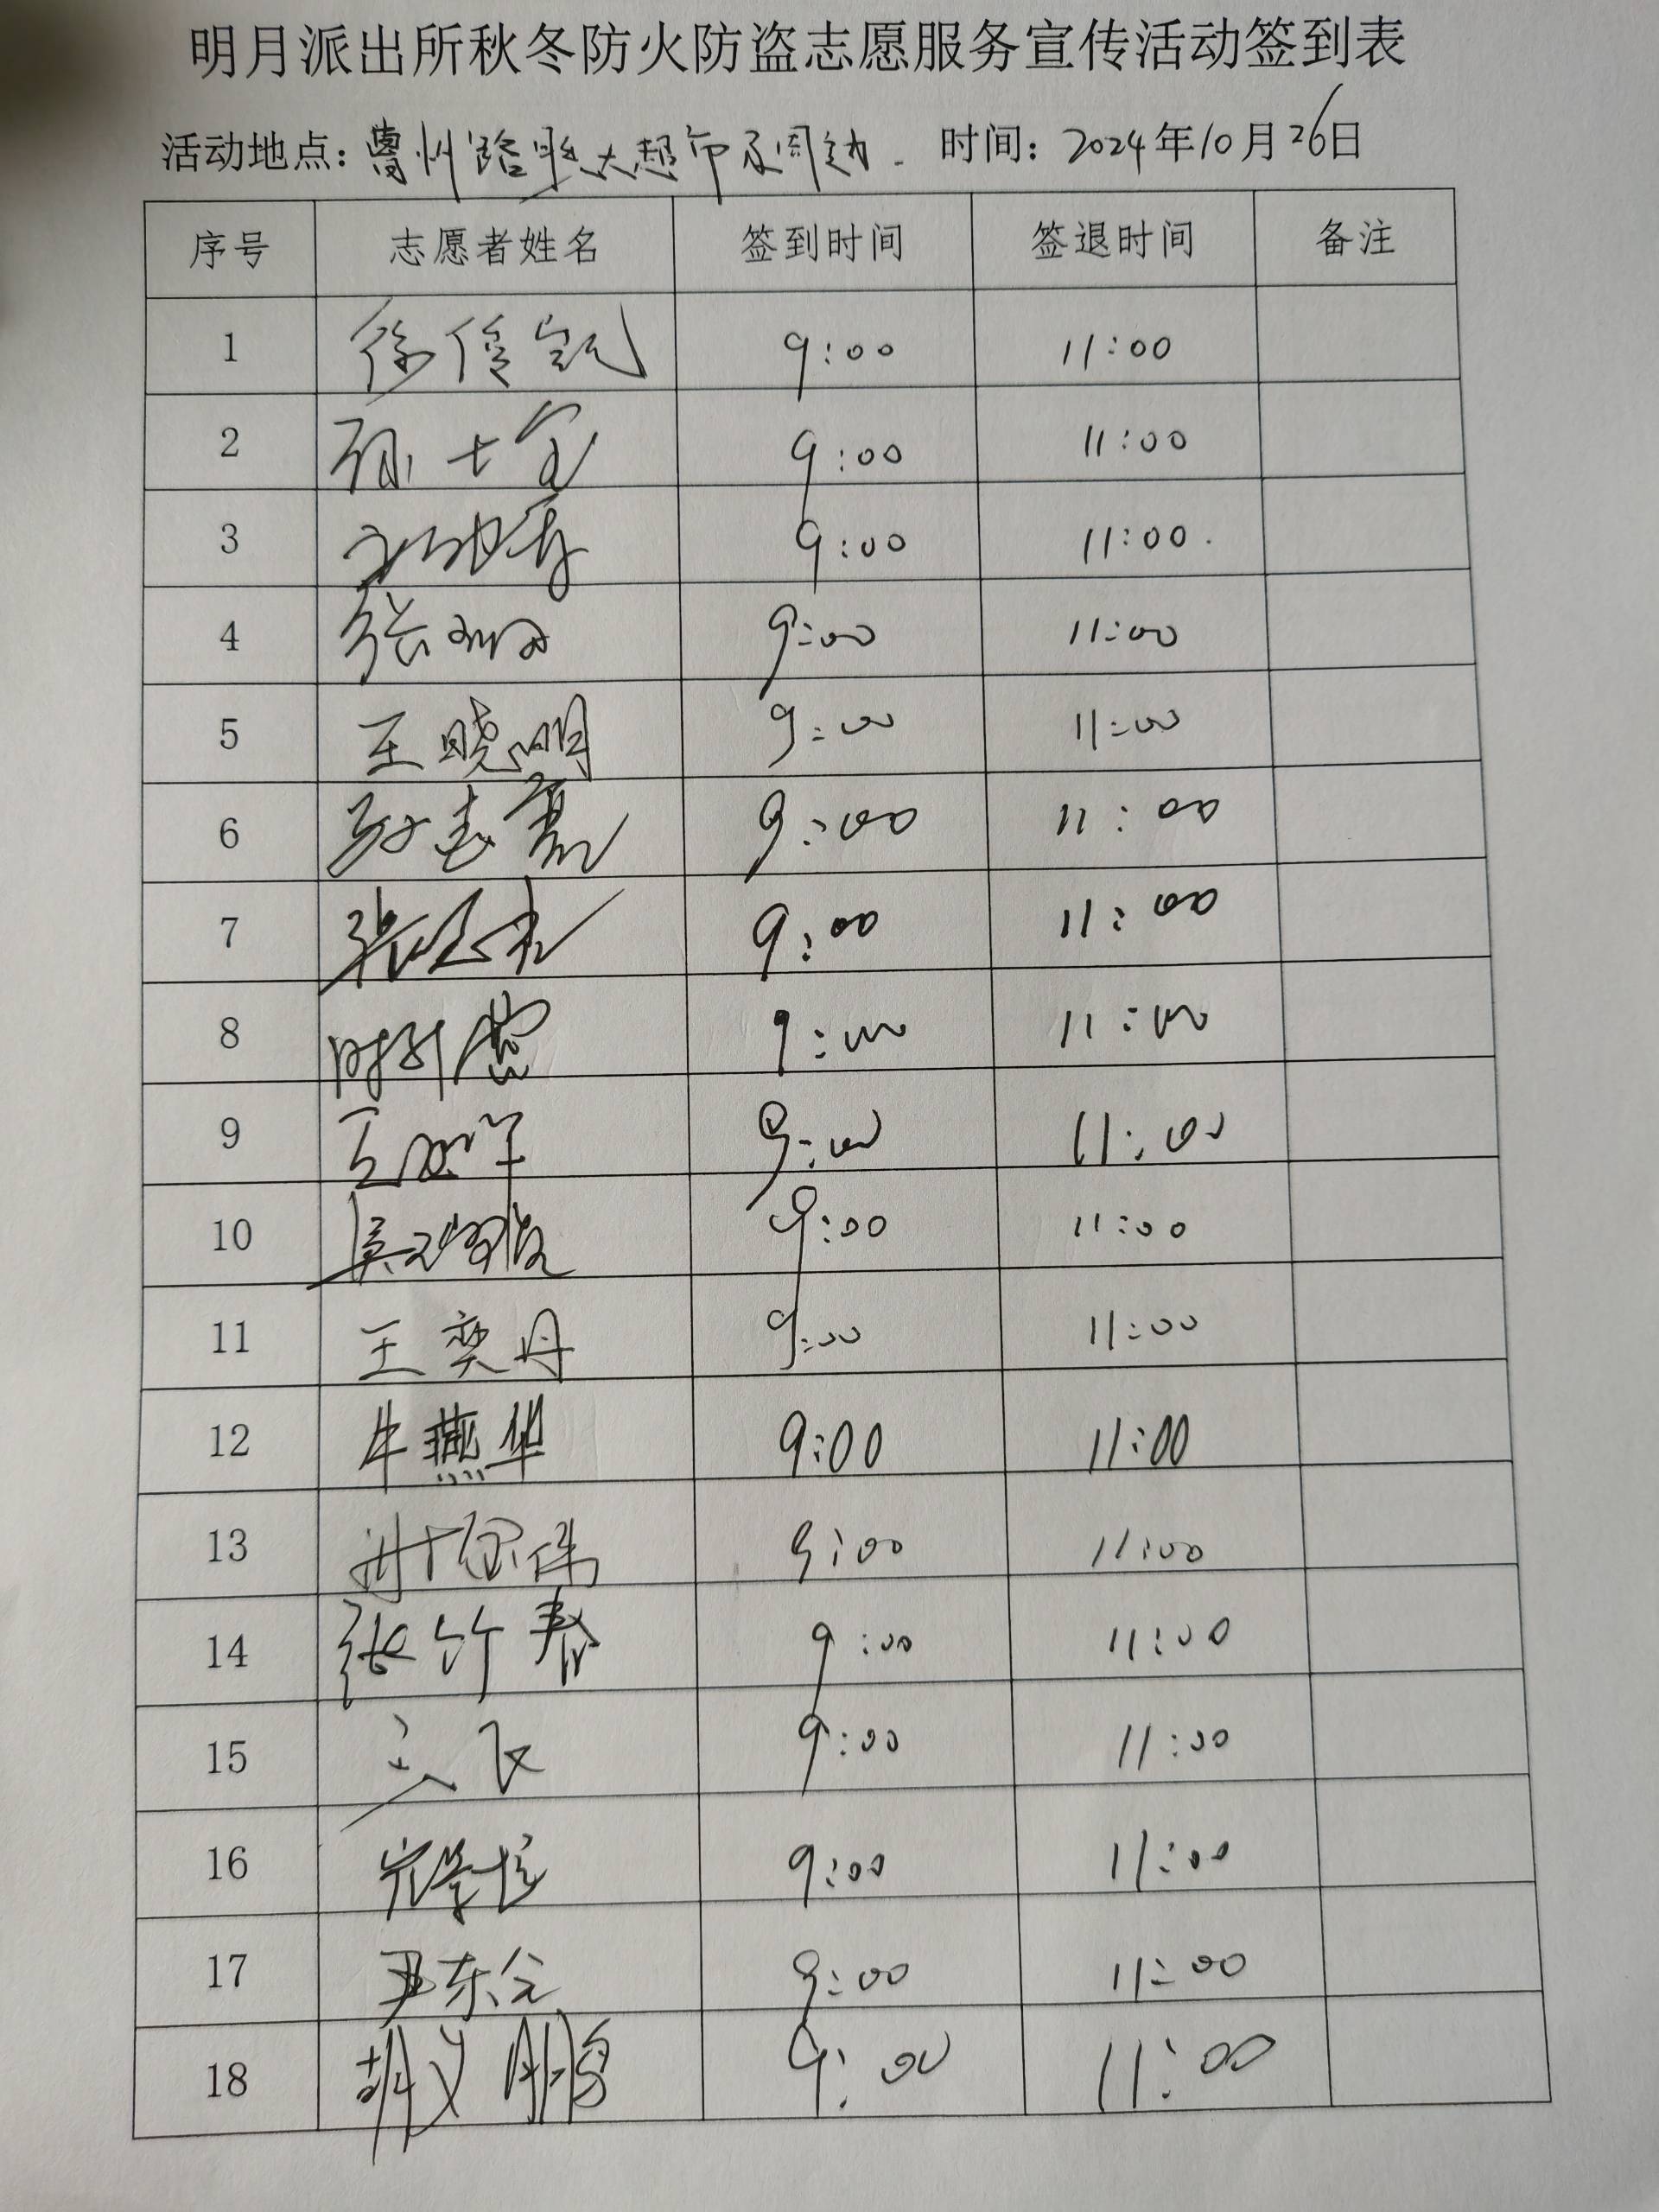 明月派出所秋冬防火防盗志愿服务宣传活动签到表
活动地点：曹州路 大超市及周边. 时间：2024年10月26日
序号 志愿者姓名 签到时间 签退时间 备注
1 徐俊凯 9:00 11:00
2 孙士宝 9:00 11:00
3 9:00 11:00.
4 张 9:00 11:00
5 王晓明 9:00 11:00
6 孙志 9:00 11:00
7 张 9:00 11:00
8 时 9:00 11:00
9 王 9:00 11:00
10 9:00 11:00
11 王奕丹 9:00 11:00
12 牛燕华 9:00 11:00
13 9:00 11:00
14 张竹春 9:00 11:00
15 9:00 11:00
16 9:00 11:00
17 尹东 9:00 11:00
18 胡义鹏 9:00 11:00